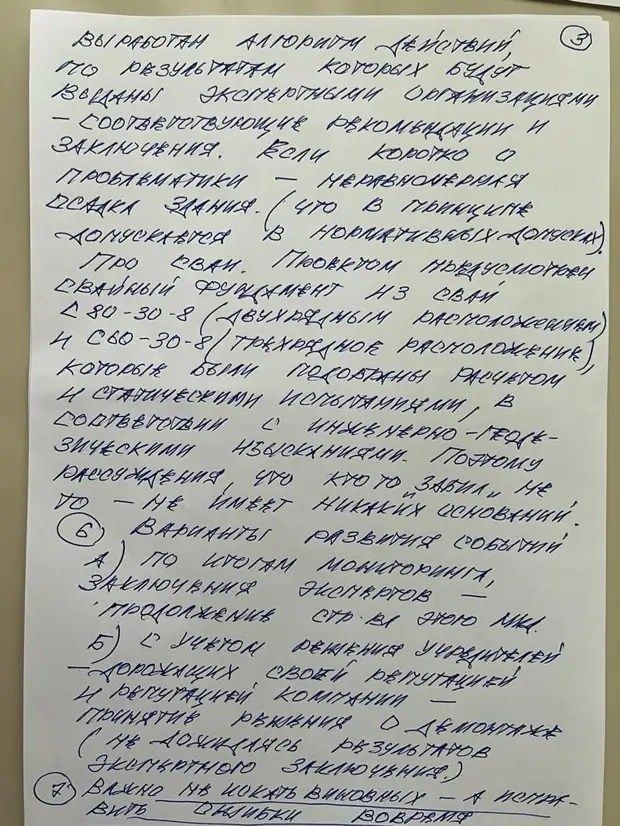 3
ВЫРАБОТАН АЛГОРИТМ ДЕЙСТВИЙ,
ПО РЕЗУЛЬТАТАМ КОТОРЫХ БУДУТ
ВЫДАНЫ ЭКСПЕРТНЫМИ ОРГАНИЗАЦИЯМИ
— СООТВЕТСТВУЮЩИЕ РЕКОМЕНДАЦИИ И
ЗАКЛЮЧЕНИЯ. ЕСЛИ КОРОТКО О
ПРОБЛЕМАТИКИ — НЕРАВНОМЕРНАЯ
ОСАДКА ЗДАНИЯ. (ЧТО В ПРИНЦИПЕ
ДОПУСКАЕТСЯ В НОРМАТИВНЫХ ДОПУСКАХ).
ПРО СВАИ. ПРОЕКТОМ ПРЕДУСМОТРЕН
СВАЙНЫЙ ФУНДАМЕНТ ИЗ СВАЙ
С80-30-8 (ДВУХРЯДНЫМ РАСПОЛОЖЕНИЕМ)
И С60-30-8 (ТРЕХРЯДНОЕ РАСПОЛОЖЕНИЕ),
КОТОРЫЕ БЫЛИ ПОДОБРАНЫ РАСЧЕТОМ
И СТАТИЧЕСКИМИ ИСПЫТАНИЯМИ, В
СООТВЕТСТВИИ С ИНЖЕНЕРНО-ГЕОДЕ-
ЗИЧЕСКИМИ ИЗЫСКАНИЯМИ. ПОЭТОМУ
РАССУЖДЕНИЯ, ЧТО КТО ТО „ЗАБИЛ„ НЕ
ТО — НЕ ИМЕЕТ НИКАКИХ ОСНОВАНИЙ.
6 ВАРИАНТЫ РАЗВИТИЯ СОБЫТИЙ
А) ПО ИТОГАМ МОНИТОРИНГА,
ЗАКЛЮЧЕНИЯ ЭКСПЕРТОВ —
ПРОДОЛЖЕНИЕ СТР-ВА ЭТОГО МКД.
Б) С УЧЕТОМ РЕШЕНИЯ УЧРЕДИТЕЛЕЙ
— ДОРОЖАЩИХ СВОЕЙ РЕПУТАЦИЕЙ
И РЕПУТАЦИЕЙ КОМПАНИИ —
ПРИНЯТИЕ РЕШЕНИЯ О ДЕМОНТАЖЕ
(НЕ ДОЖИДАЯСЬ РЕЗУЛЬТАТОВ
ЭКСПЕРТНОГО ЗАКЛЮЧЕНИЯ.)
7 ВАЖНО НЕ ИСКАТЬ ВИНОВНЫХ — А ИСПРА-
ВИТЬ ОШИБКИ ВОВРЕМЯ